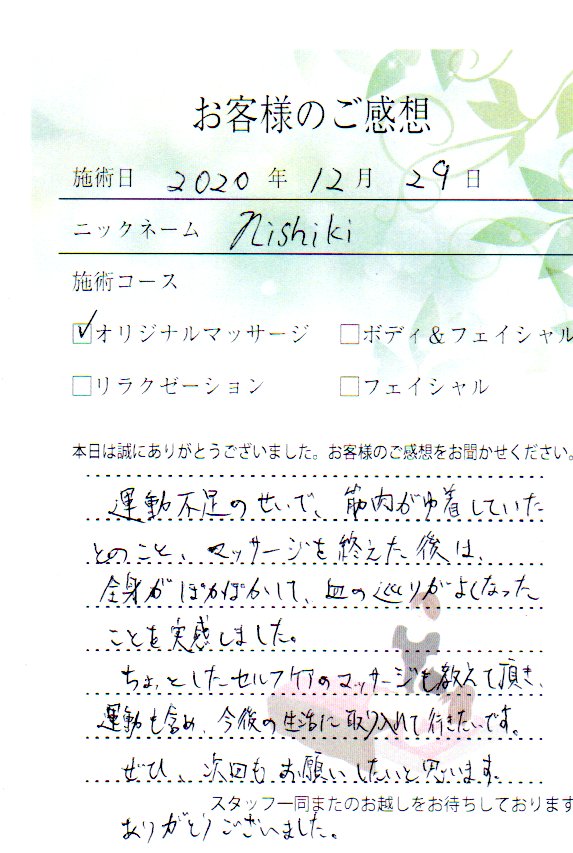 お客様のご感想
施術日 2020 年 12 月 29 日
ニックネーム Nishiki
施術コース
☑オリジナルマッサージ □ボディ＆フェイシャル
□リラクゼーション □フェイシャル
本日は誠にありがとうございました。お客様のご感想をお聞かせください。
運動不足のせいで、筋肉がゆ着していた
とのこと、マッサージを終えた後は、
全身がぽかぽかして、血の巡りがよくなった
ことを実感しました。
ちょっとしたセルフケアのマッサージも教えて頂き、
運動も含め、今後の生活に取り入れて行きたいです。
ぜひ、次回もお願いしたいと思います。
スタッフ一同またのお越しをお待ちしております
ありがとうございました。